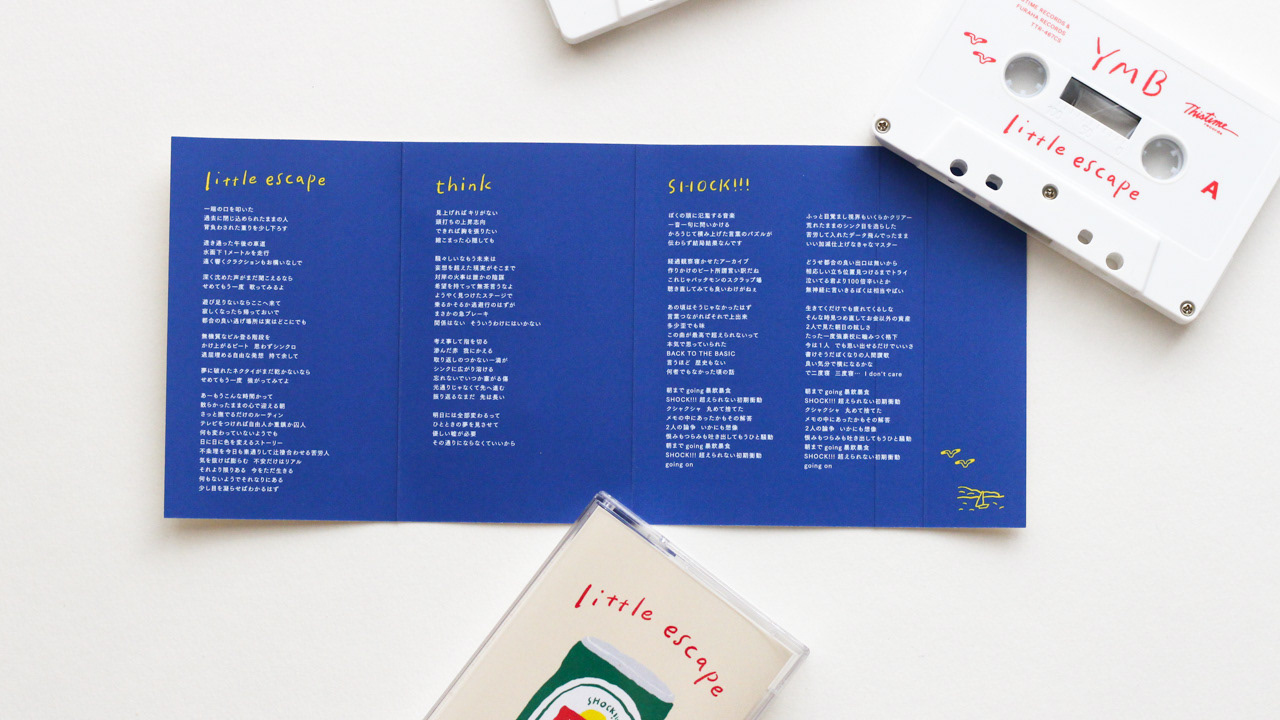 THISTIME RECORDS &
FURAHA RECORDS
YMB
Thistime
records
little escape
A
little escape
一端の口を叩いた
過去に閉じ込められたままの人
背負わされた重りを少し下ろす
透き通った午後の車道
水面下1メートルを走行
遠く響くクラクションもお構いなしで
深く沈めた声がまだ聞こえるなら
せめてもう一度 歌ってみるよ
遊び足りないならここへ来て
寂しくなったら帰っておいで
都合の良い逃げ場所は実はどこにでも
無機質なビル登る階段を
かけ上がるビート 思わずシンクロ
退屈埋める自由な発想 持て余して
夢に破れたネクタイがまだ乾かないなら
せめてもう一度 強がってみてよ
あーもうこんな時間かって
散らかったままの心で迎える朝
さっと撫でるだけのルーティン
テレビをつければ自由人か重鎮か囚人
何も変わっていないようでも
日に日に色を変えるストーリー
不条理を今日も素通りして辻褄合わせる苦労人
気を抜けば膨らむ 不安だけはリアル
それより限りある 今をただ生きる
何もないようでそれなりにある
少し目を凝らせばわかるはず
think
見上げればキリがない
頭打ちの上昇志向
できれば胸を張りたい
縮こまった心隠しても
騒々しいなもう未来は
妄想を超えた現実がそこまで
対岸の火事は誰かの陰謀
希望を持てって無茶言うなよ
ようやく見つけたステージで
乗るかそるか逃避行のはずが
まさかの急ブレーキ
関係はない そういうわけにはいかない
考え事して指を切る
滲んだ赤 我にかえる
取り返しのつかない一滴が
シンクに広がり溶ける
忘れないでいつか塞がる傷
光通りじゃなくて先へ進む
振り返るなまだ 先は長い
明日には全部変わるって
ひとときの夢を見させて
優しい嘘が必要
その通りにならなくていいから
SHOCK!!!
ぼくの頭に氾濫する音楽
一音一句に問いかける
かろうじて積み上げた言葉のパズルが
伝わらず結局結果なんです
経過観察寄かせたアーカイブ
作りかけのビート所謂言い訳だね
これじゃパッチモンのスクラップ場
聴き直してみても良いわけがねぇ
あの頃はそうじゃなかったはず
言葉つながればそれで上出来
多少歪でも味
この曲が最高で超えられないって
本気で思っていられた
BACK TO THE BASIC
言うほど 歴史もない
何者でもなかった頃の話
朝まで going 暴飲暴食
SHOCK!!! 超えられない初期衝動
クシャクシャ 丸めて捨てた
メモの中にあったかもその解答
2人の論争 いかにも想像
恨みもつらみも吐き出してもうひと騒動
朝まで going 暴飲暴食
SHOCK!!! 超えられない初期衝動
going on
ふっと目覚まし視界もいくらかクリアー
荒れたままのシンク目を逸らした
苦労して入れたデータ飛んでったまま
いい加減仕上げなきゃなマスター
どうせ都合の良い出口は無いから
相応しい立ち位置見つけるまでトライ
泣いてる君より100倍辛いとか
無神経に言いきるぼくは相当やばい
生きてくだけでも疲れてくるしな
そんな時見つめ直してお金以外の資産
2人で見た朝日の眩しさ
たった一度強豪校に噛みつく格下
今は1人 でも思い出せるだけでいいさ
書けそうだぼくなりの人間讃歌
良い気分で横になるかな
で二度寝 三度寝… I don't care
朝まで going 暴飲暴食
SHOCK!!! 超えられない初期衝動
クシャクシャ 丸めて捨てた
メモの中にあったかもその解答
2人の論争 いかにも想像
恨みもつらみも吐き出してもうひと騒動
朝まで going 暴飲暴食
SHOCK!!! 超えられない初期衝動
going on
little escape
SHOCK!!!